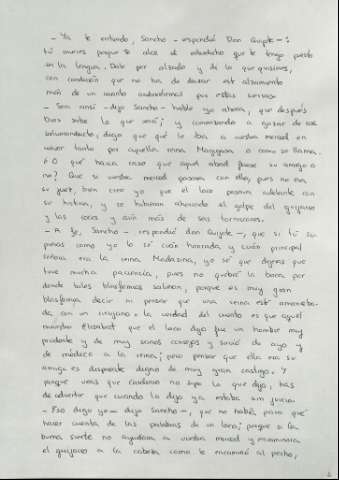 - Ya te entiendo, Sancho - respondió Don Quijote - :
tú mueres porque te alce el entredicho que te tengo puesto
en la lengua. Dale por alzado y di lo que quisieres,
con condición que no ha de durar este alzamiento
más de en cuanto anduviéremos por estas sierras.
- Sea ansí - dijo Sancho - hable yo ahora, que después
Dios sabe lo que será; y comenzando a gozar de ese
salvoconducto, digo que qué le iba a vuestra merced en
volver tanto por aquella reina Magimasa o como se llama.
¿O qué hacía al caso que aquel abad fuese su amigo o
no? Que si vuestra merced pasara con ello, pues no era
su juez, bien creo yo que el loco pasara adelante con
su historia, y se hubieran ahorrado el golpe del guijarro
y las coces y aún más de seis torniscones.
- A fe, Sancho - respondió don Quijote -, que si tú su-
pieras como yo lo sé cuán honrada y cuán principal
señora era la reina Madasima, yo sé que dijeras que
tuve mucha paciencia, pues no quebré la boca por
donde tales blasfemias salieron, porque es muy gran
blasfemia decir ni pensar que una reina esté amanceba-
da con un cirujano. La verdad del cuento es que aquel
maestro Elisabat que el loco dijo fue un hombre muy
prudente y de muy sanos consejos y sirvió de ayo y
de médico a la reina; pero pensar que ella era su
amiga es disparate digno de muy gran castigo. Y
porque veas que Cardenio no supo lo que dijo, has
de advertir que cuando lo dijo ya estaba sin juicio.
- Eso digo yo - dijo Sancho -, que no había para qué
hacer cuenta de las palabras de un loco; porque si la
buena suerte no ayudara a vuestra merced y encaminara
el guijarro a la cabeza como le encaminó al pecho,